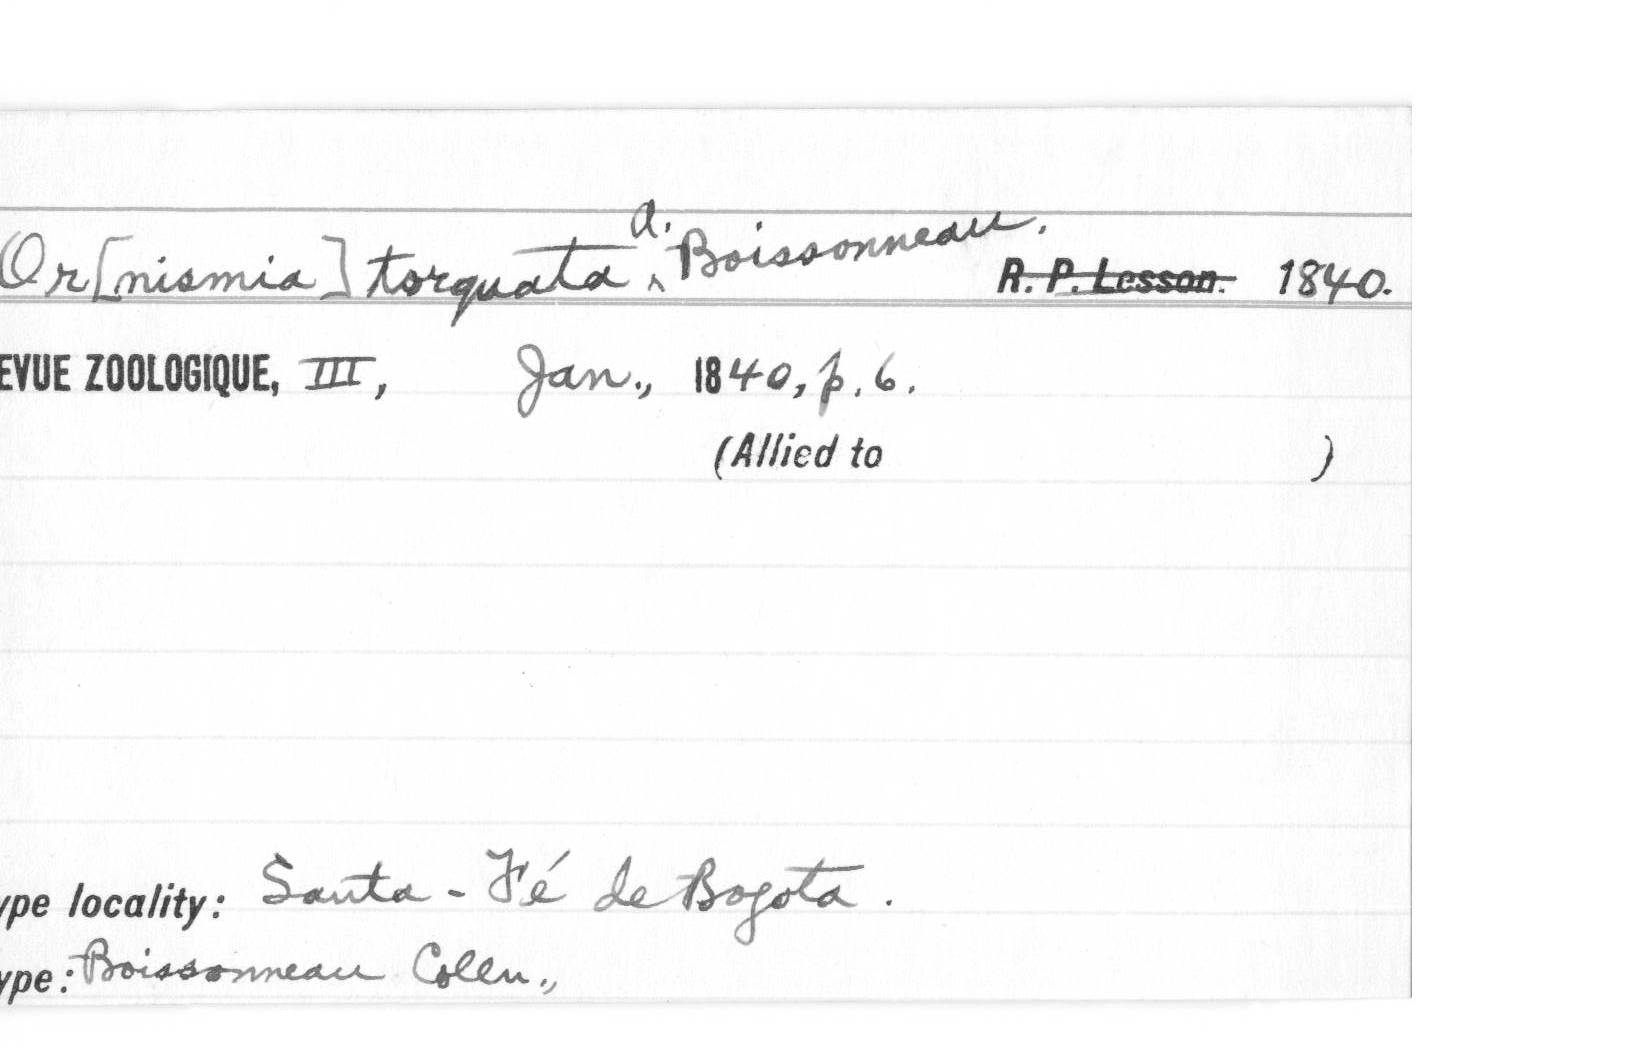 Or[nismia] torquata ^ A. Boissonneau. R. P. Lesson. 1840.
EVUE ZOOLOGIQUE, III, Jan., 1840, p. 6.
(Allied to )
ype locality: Santa-Fé de Bogota.
ype: Boissonneau Colln.,